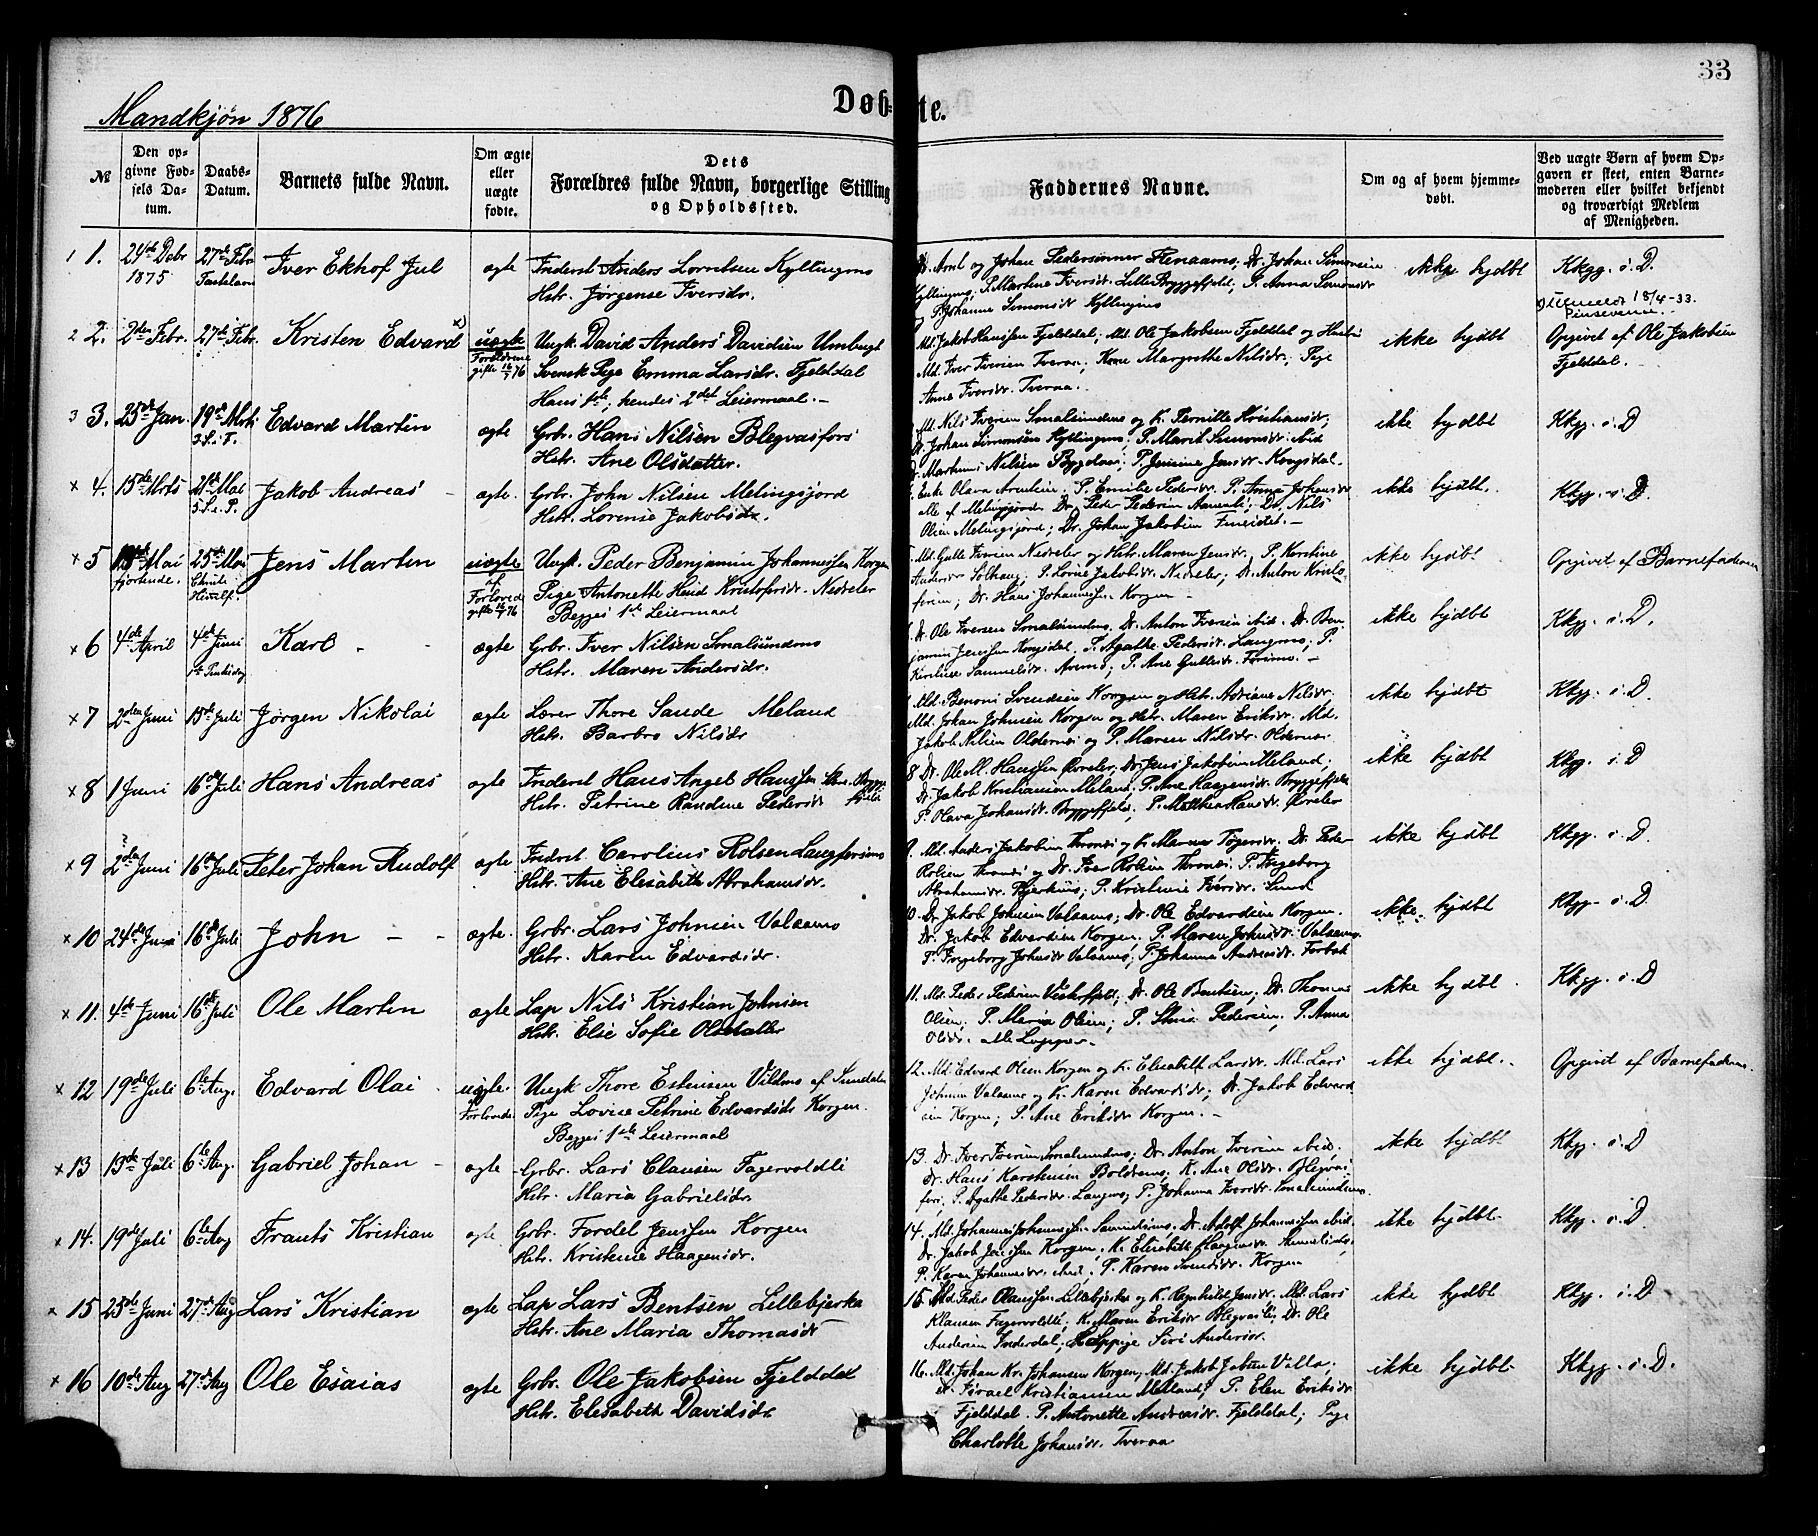 33
Døb=
te.
Mandkjøn 1876
№
Den op=
givne Fød=
sels Da=
tum.
Daabs=
Datum.
Barnets fulde Navn.
Om ægte
eller
uægte
fødte.
Dets
Forældres fulde Navn, borgerlige Stilling
og Opholdssted.
Faddernes Navne.
Om og af hvem hjemme=
døbt.
Ved uægte Børn af hvem Op=
gaven er skeet, enten Barne=
moderen eller hvilket bekjendt
og troværdigt Medlem
af Menigheden.
1 1. 24de Decbr 1875
27de Febr Fastelavn
Iver Ekhof Jul
ægte
Inderst Anders Lorntsen Kyllingmo
Hstr. Jørgense Iversdr.
Johan Simonsen
Kyllingmo; P. Martine Iversdr. Lille Bryggefjeld; P. Anna Simonsdr
P. Johanne Simonsdr Kyllingmo
ikke hjdbt
Kkgg. i. D.
Udmeldt 18/4-33.
Pinsevenn.
2 2. 2den Febr.
27de Febr.
Kristen Edvard x)
uægte
Forældrene
gifte 16/7 76
Ungk. David Anders Davidsen Umbugt
Svensk Pige Emma Larsdr. Fjelddal
Hans 1ste, hendes 2det Leiermaal. -
Md. Jakob Hansen Fjelddal; Md. Ole Jakobsen Fjelddal og Hustru
Md. Iver Iversen Tveraa; Kone Margrethe Nilsdr.; Pige
Anne Iversdr. Tveraa.
ikke hjdbt
Opgivet af Ole Jakobsen
Fjelddal.
3 3. 25de Jan
19de Mrts
3.S.i F.
Edvard Martin
ægte
Grbr. Hans Nilsen Blegvasfors
Hstr. Ane Olsdatter.
Md. Nils Iversen Smalsundmo og K. Pernille Kristiansdr;
Dr. Johan Simonsen Kyllingmo; P. Marit Simonsdr ibid
Nilsen Bygdaas; P. Jensine Jensdr. Kongsdal.
ikke hjdbt
Kkgg. i. D
x 4. 15de Mrts
21de Mai
5.S.e.P.
Jakob Andreas -
ægte.
Grbr. John Nilsen Melingsjord
Hstr. Lorense Jakobsdr.
Enke Olava Arntsen. P. Emilie Pedersdr. P. Anna Johansdr
alle af Melingsjord. Dr. Peder Pedersen; Dr. Nils
Olsen Melingsjord; Dr. Johan Jakobsen Fineidet. -
ikke hjdbt.
Kkgg. i. D.
x 5 Mai
fjortende.
25de Mai
Christi
Himlf.
Jens Martin
uægte
af
Forlovede
gifte 76
Ungk. Peder Benjamin Johannessen Korgen
Pige Antonette Hind Kristofersdr. Nedreler
Begges 1ste Leiermaal
Iversen Nedreler og Hstr. Maren Jensdr. P. Kerstine
Andersdr Solhaug; P. Lovise Jakobsdr. Nedreler; Dr. Anton Kristo=
fersen; Dr. Hans Johannessen Korgen -
ikke hjdbt
Opgivet af Barnefaderen
x 6 4de April
4de Juni
1st Pintsedag
Karl - -
ægte
Grbr. Iver Nilsen Smalsundmo
Hstr. Maren Andersdr.
Dr. Ole Iversen Smalsundmo. Dr. Anton Iversen ibid. Dr. Ben
jamin Jenssen Kongsdal. P. Agathe Pedersdr. Langmo; P.
Kirstine Samuelsdr. P. Ane Gullesdr. Forsmo. -
ikke hjdbt
Kkgg. i. D.
x 7 2den Juni
15de Juli
Jørgen Nikolai
ægte
Lærer Thore Sande Meland
Hstr. Barbro Nilsdr
Md. Benoni Svendsen Korgen og Hstr. Adriane Nilsdr;
Md. Johan Johnsen Korgen og Hstr. Maren Eriksdr. Md.
Jakob Nilsen Oldernes og P. Maren Nilsdr. Oldernes
ikke hjdbt
Kkgg. i. D.
x 8 1 Juni
16de Juli
Hans Andreas
ægte
Inderst Hans Angel Hanssen Brygge
fjeld
Hstr. Petrine Randine Pedersdr
8 Dr. Ole M. Hanssen Øvreler; Dr. Jens Jakobsen Meland;
Dr. Jakob Kristiansen Meland; P. Ane Haagensdr. Bryggefjeld
P. Olava Johansdr. Bryggefjeld; P. Marthea Hansdr. Øvreler
ikke hjdbt
Kkgg. i. D
x 9 2den Juni
16de Juli
Peter Johan Rudolf
ægte
Indrst Carolius Rolsen Langforsmo
Hstr. Ane Elisabeth Abrahamsdr.
9. Md. Anders Jakobsen Thronæs og K. Marna Tøgersdr. Dr. Peder
Rolsen Thronæs og Dr. Iver Rolsen Thronæs. P. Ingeborg
Abrahamsdr. Bjerkmo; P. Kristine Iversdr. Lund
ikke hjdbt
Kkgg. i. D
x 10 24de Juni
16de Juli
John - -
ægte.
Grbr. Lars Johnsen Valaamo
Hstr. Karen Edvardsdr.
10. Dr. Jakob Johnsen Valaamo; Dr. Ole Edvardsen Korgen.
Dr. Jakob Edvardsen Korgen. P. Maren Johnsdr. Valaamo
P. Ingeborg Johnsdr Valaamo; P. Johanna Andreasdr. Forbak
ikke hjdbt
Kkgg. i. D
x 11. 4de Juni
16de Juli
Ole Martin
ægte
Lap Nils Kristian Johnsen
Hstr. Elie Sofie Olsdatter
11. Md. Peder Pedersen; Dr. Ole Bentsen; Dr. Thomas
Olsen; P. Maria Olsen; P. Stina Pedersen; P. Anna
Olsdr. alle Lapper.
ikke hjdbt
Kkgg. i. D
x 12 19de Juli
6te Aug.
Edvard Olai
uægte.
Forlovede
Ungk Thore Estensen Vildmo af Sundalen
Pige Lovise Petrine Edvardsdr Korgen.
Begges 1ste Leiermaal
12. Md. Edvard Olsen Korgen og K. Elisabeth Larsdr. Md. Lars
Johnsen Valaamo og K. Karen Edvardsdr; Dr. Jakob Edvard
sen Korgen; P. Ane Eriksdr Korgen. -
ikke hjdbt.
Opgivet af Barnefaderen.
x 13 19de Juli
6te Aug.
Gabriel Johan -
ægte
Grbr. Lars Clausen Fagervoldli
Hstr. Maria Gabrielsdr.
13. Dr. Iver Iversen Smalsundmo; Dr. Anton Iversen ibid;
Dr. Hans Karstensen Boldermo; K. Ane Olsdr. Blegvas
fors; P. Agathe Pedersdr. Langmo; P. Johanna Iversdr. Smalsundmo.
ikke hjdbt
Kkgg. i. D
x 14. 19de Juli
6te Aug
Frants Kristian
ægte
Grbr. Fordel Jenssen Korgen
Hstr. Kristine Haagensdr.
14. Md. Johannes Johannessen; Dr. Adolf Johannessen ibid.
Dr. Jakob Jenssen Korgen; K. Elisabeth Haagensdr.
P. Karen Johannesdr. ibid; P. Karen Svendsdr. Korgen
ikke hjdbt
Kkgg. i. D.
x 15 25de Juni
27de Aug
Lars Kristian
ægte
Lap Lars Bentsen Lillebjerka
Hstr. Ane Maria Thomasdr
15. Md. Peder Olaussen Lillebjerka og K. Regnhild Jensdr. Md. Lars
Klausen Fagervoldli; K. Maren Eriksdr Blegvasli; Dr. Ole
Andersen Inderdal; Lappige Siri Andersdr.
ikke hjdbt
Kkgg. i. D
x 16 10de Aug
27de Aug
Ole Esaias
ægte
Grbr. Ole Jakobsen Fjelddal
Hstr. Elisabeth Davidsdr.
16. Md. Johan Kr. Johansen Korgen, Md. Jakob Jabsen Villa;
Dr. Israel Kristiansen Meland; P. Elen Eriksdr
Fjelddal. P. Antonette Andreasdr. Fjelddal; Pige
Charlotte Johansdr. Tveraa
ikke hjdbt
Kkgg. i. D.